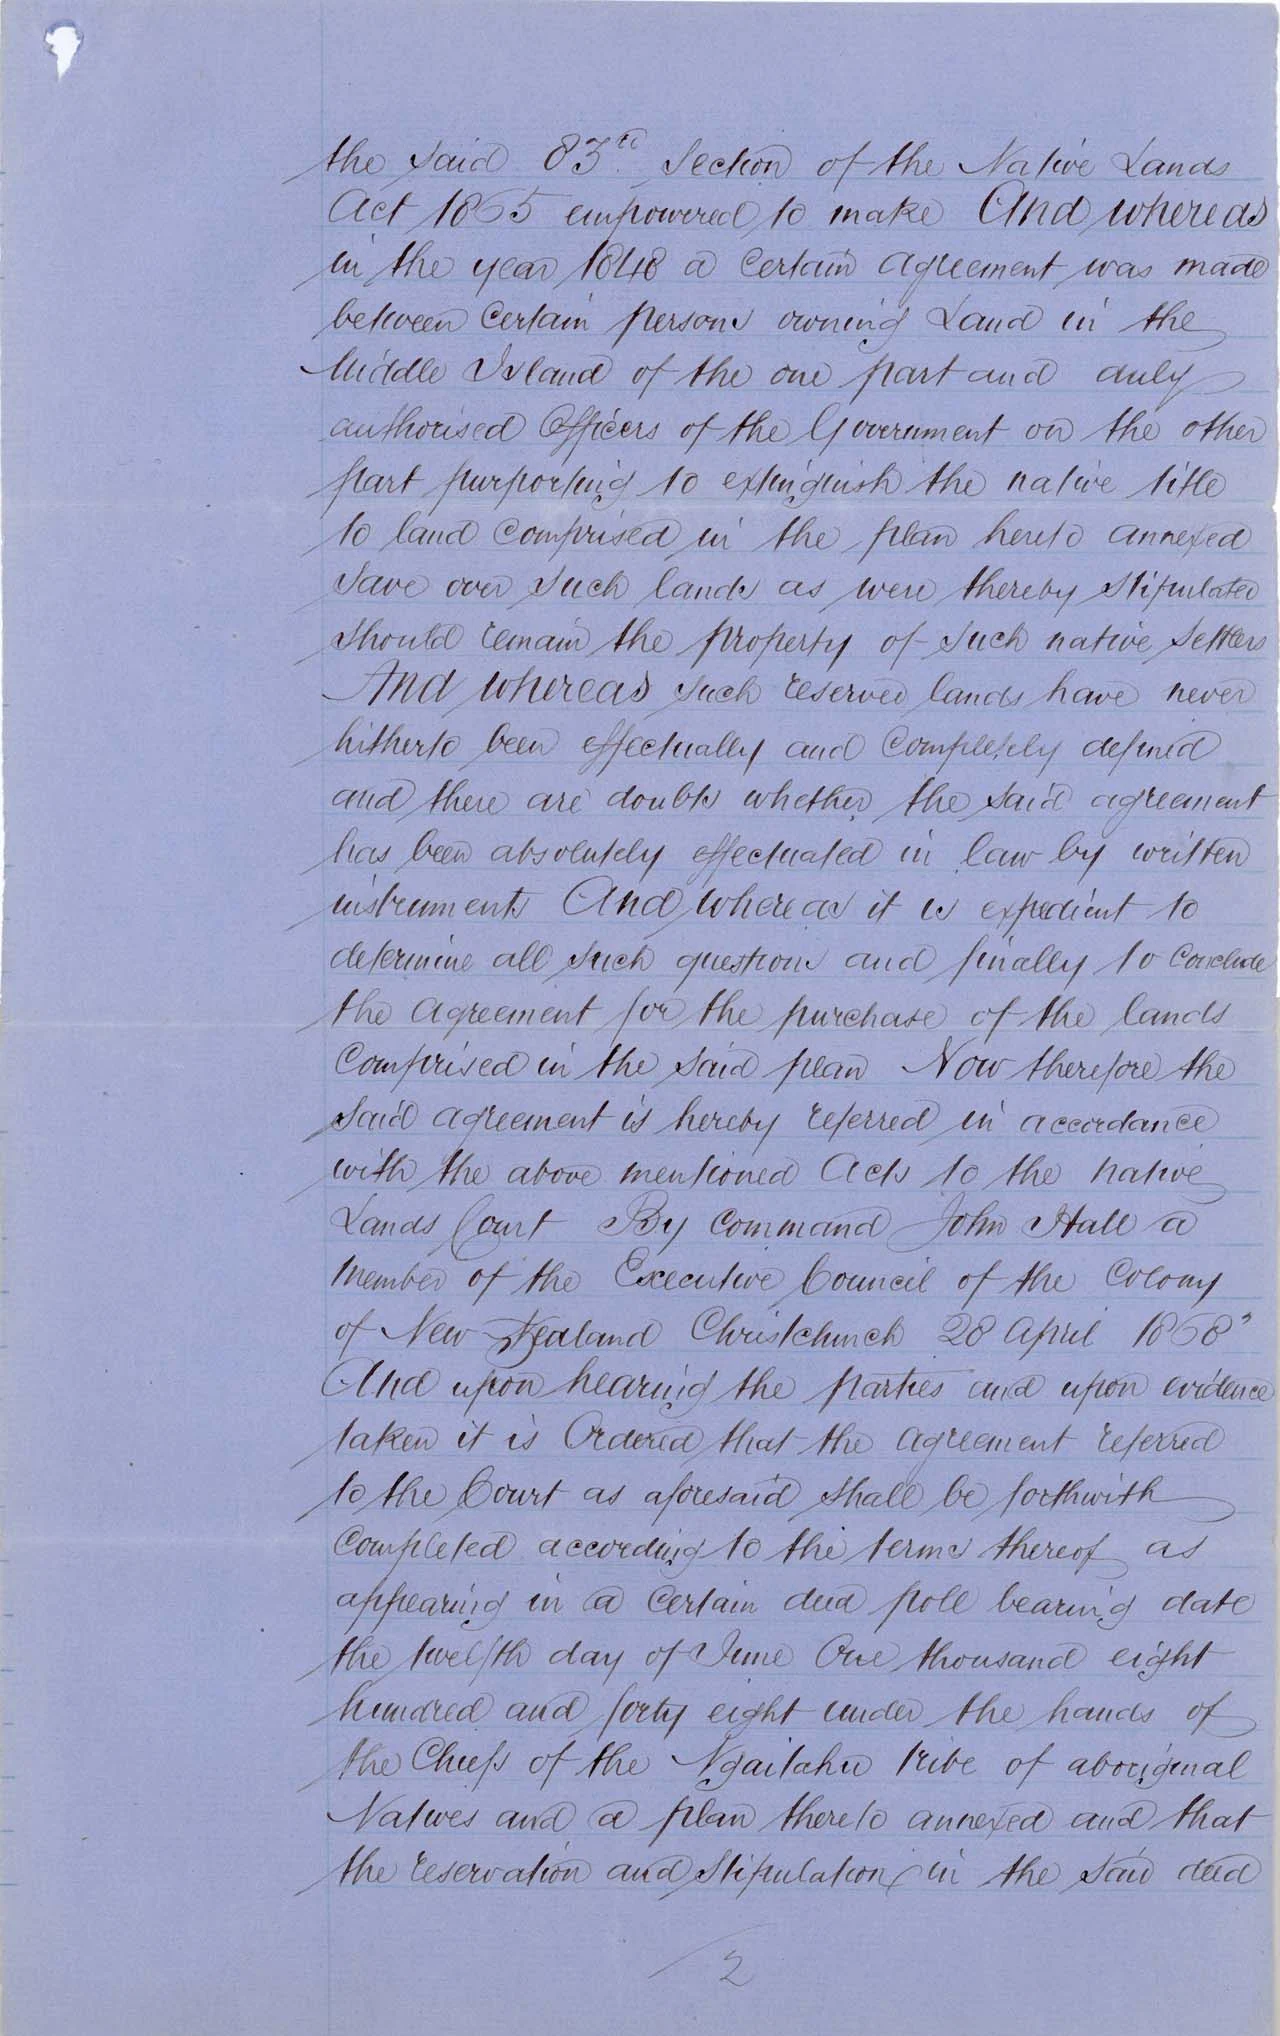 the said 83rd. Section of the Native Lands
Act 1865 empowered to make And whereas
in the year 1848 a certain agreement was made
between certain persons owning Land in the
Middle Island of the one part and duly
authorised Officers of the Government on the other
part purporting to extinguish the native title
to land comprised in the plan hereto annexed
save over such lands as were thereby stipulated
should remain the property of such native settlers
And whereas such reserved lands have never
hitherto been effectually and completely defined
and there are doubts whether the said agreement
has been absolutely effectuated in law by written
instruments And whereas it is expedient to
determine all such questions and finally to conclude
the agreement for the purchase of the lands
comprised in the said plan Now therefore the
said agreement is hereby referred in accordance
with the above mentioned Acts to the native
Lands Court By Command John Hall a
member of the Executive Council of the Colony
of New Zealand Christchurch 28 April 1868"
And upon hearing the parties and upon evidence
taken it is Ordered that the agreement referred
to the Court as aforesaid shall be forthwith
completed according to the terms thereof as
appearing in a certain deed poll bearing date
the twelfth day of June One thousand eight
hundred and forty eight under the hands of
the Chiefs of the Ngaitahu tribe of aboriginal
Natives and a plan thereto annexed and that
the reservation and stipulation in the said deed
2